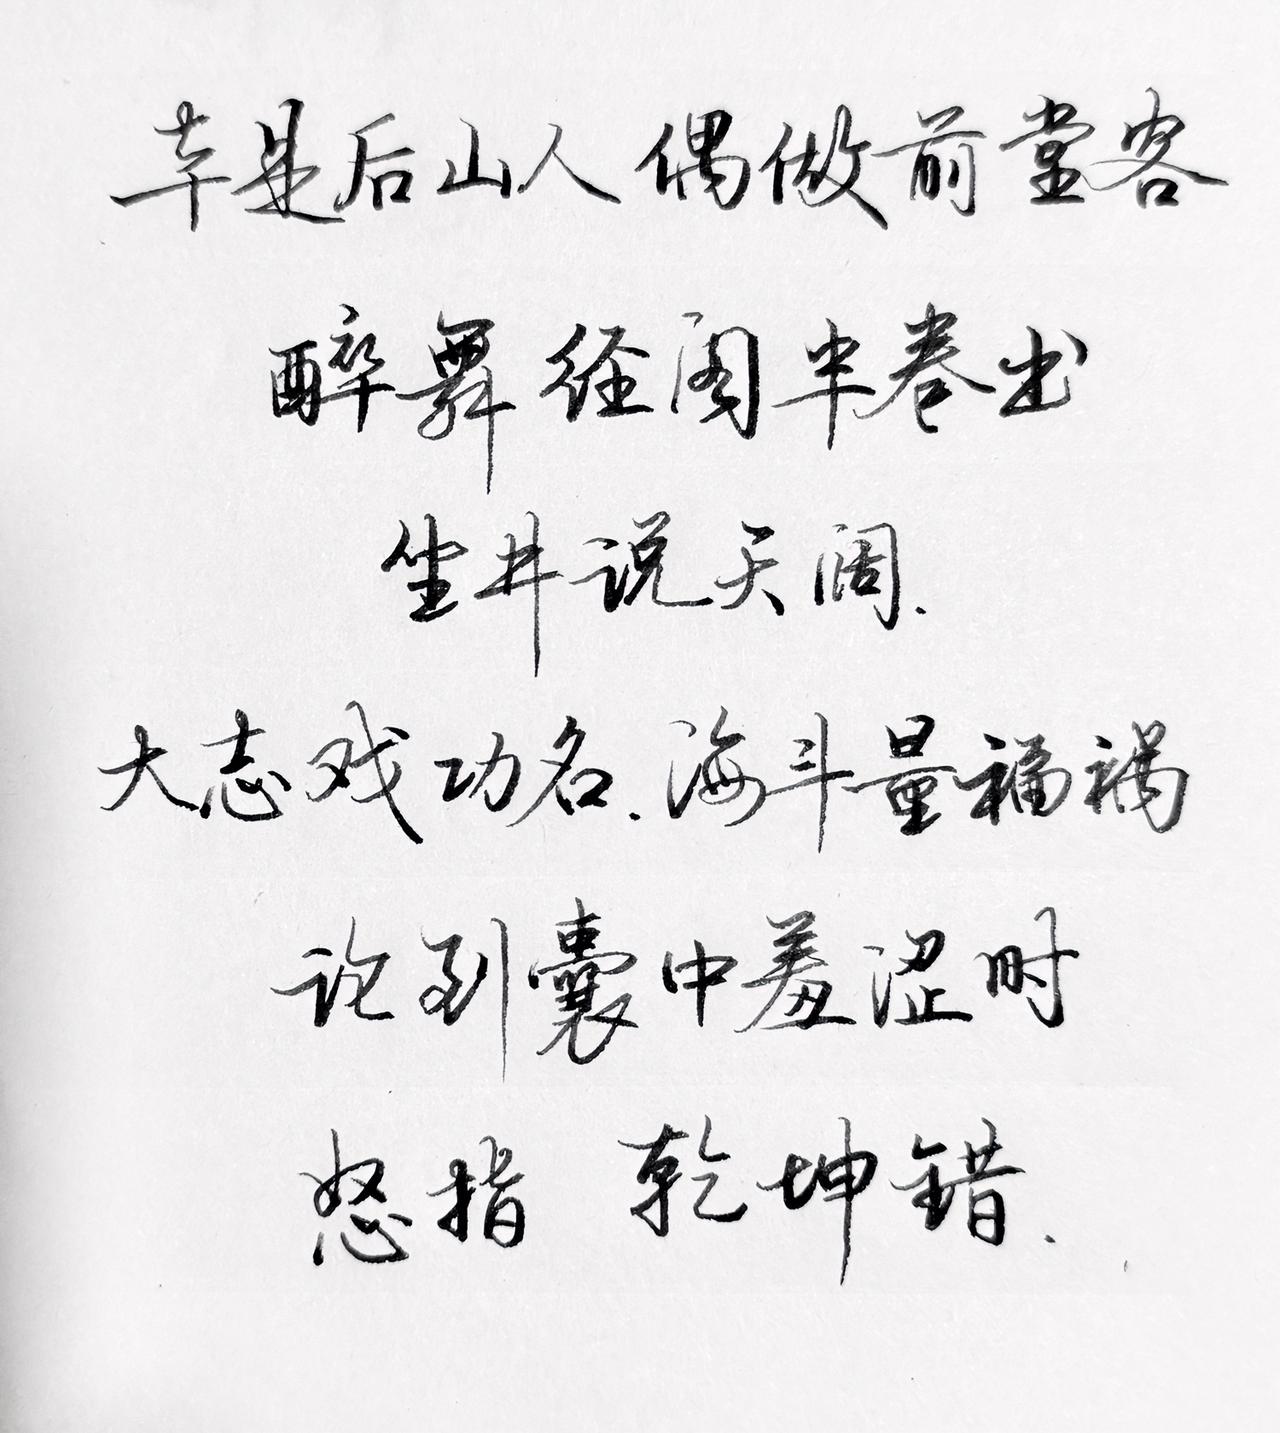 本是后山人偶做前堂客
醉舞经阁半卷书
坐井说天阔.
大志戏功名.海斗量福祸
论到囊中羞涩时
怒指 乾坤错.